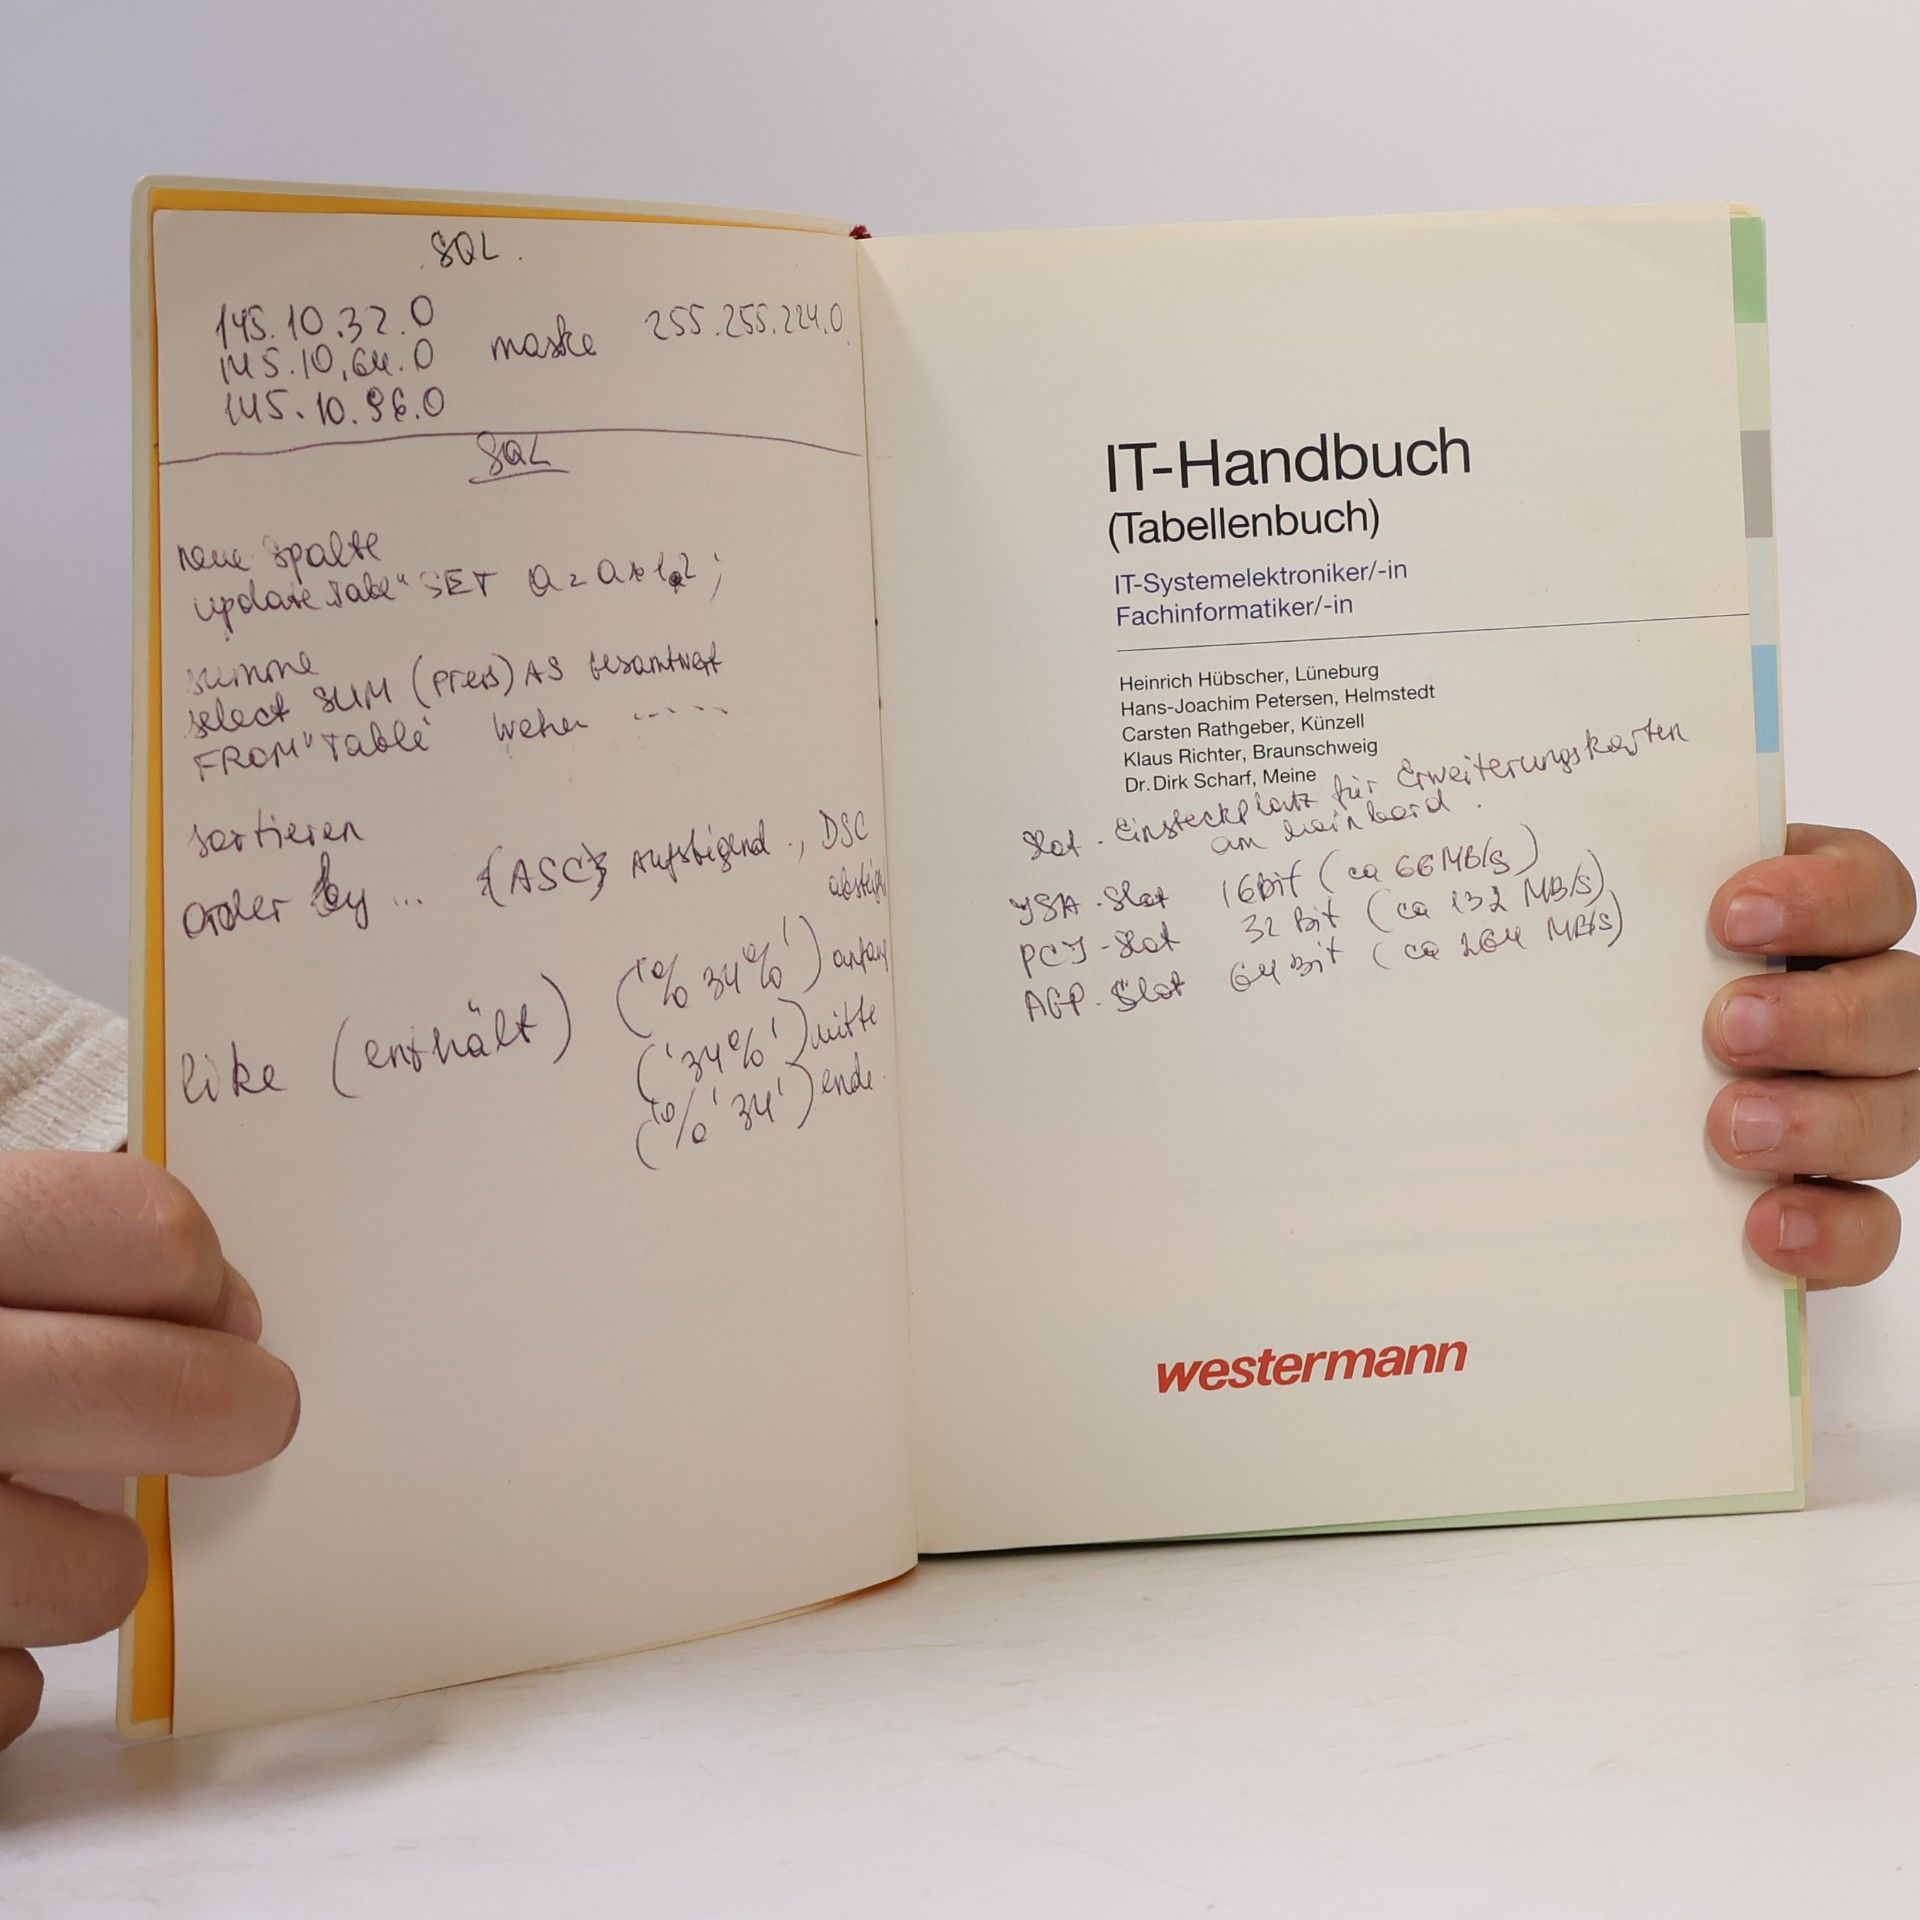 SQL
145.10.32.0
145.10.64.0 maske 255.255.224.0
145.10.96.0
SQL
neue Spalte
update "Tabe" SET a = a * 1,2 ;
summe
select SUM (Preis) AS Gesamtwert
FROM "Table" weher .....
sortieren
order by ... {ASC} Aufsteigend., DSC
absteigend
like (enthält) ('%34%') anfang
('34%') mitte
(%'34') ende.
IT-Handbuch
(Tabellenbuch)
IT-Systemelektroniker/-in
Fachinformatiker/-in
Heinrich Hübscher, Lüneburg
Hans-Joachim Petersen, Helmstedt
Carsten Rathgeber, Künzell
Klaus Richter, Braunschweig
Dr. Dirk Scharf, Meine
Slot - Einsteckplatz für Erweiterungskarten
am Mainboard.
ISA-Slot 16Bit (ca 66MB/s)
PCI-Slot 32 Bit (ca 132 MB/s)
AGP-Slot 64 Bit (ca 264 MB/s)
westermann